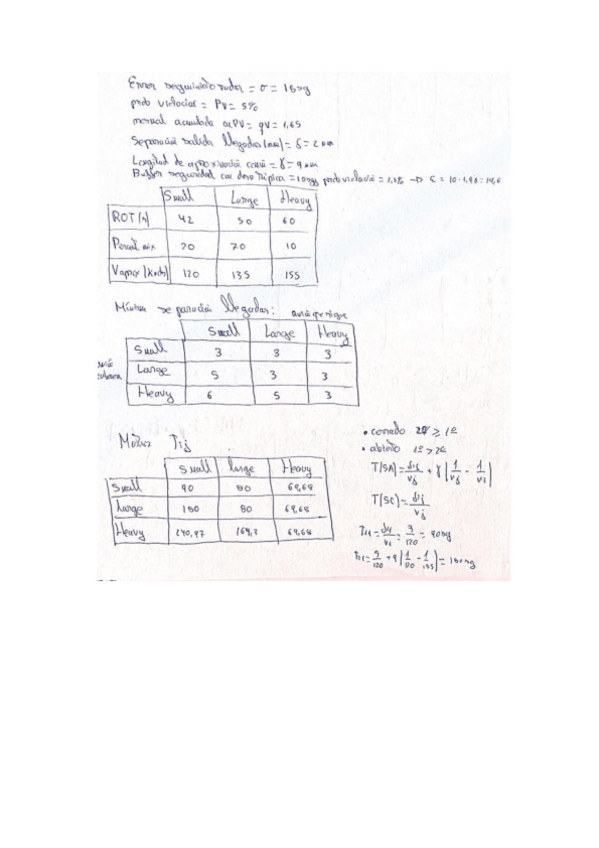 Error seguimiento radar = σ = 15 sg
prob violacion = PV = 5%
normal acumulada de PV = qV = 1,65
Separación salida llegadas (nm) = δ = 2 nm
Longitud de aproximación común = γ = 9 nm
Buffer seguridad con desv típica = 10 sg prob violación =
Small Large Heavy
ROT (s) 42 50 60
Porcent mix 20 70 10
Vaprox (knots) 120 135 155
Mínima separación llegadas: avión que sigue
Small Large Heavy
Small 3 3 3
Large 5 3 3
Heavy 6 5 3
Matriz Tij
Small large Heavy
Small 90 80 69,68
Large 160 80 69,68
Heavy 240,97 169,2 69,68
• cerrado 2º ≥ 1º
• abierto 1º > 2º
T(SA) = δij/vj + γ(1/vj - 1/vi)
T(SC) = δij/vj
= 3/120 = 90 sg
= 5/120 + 9(1/120 - 1/135) = 180 sg